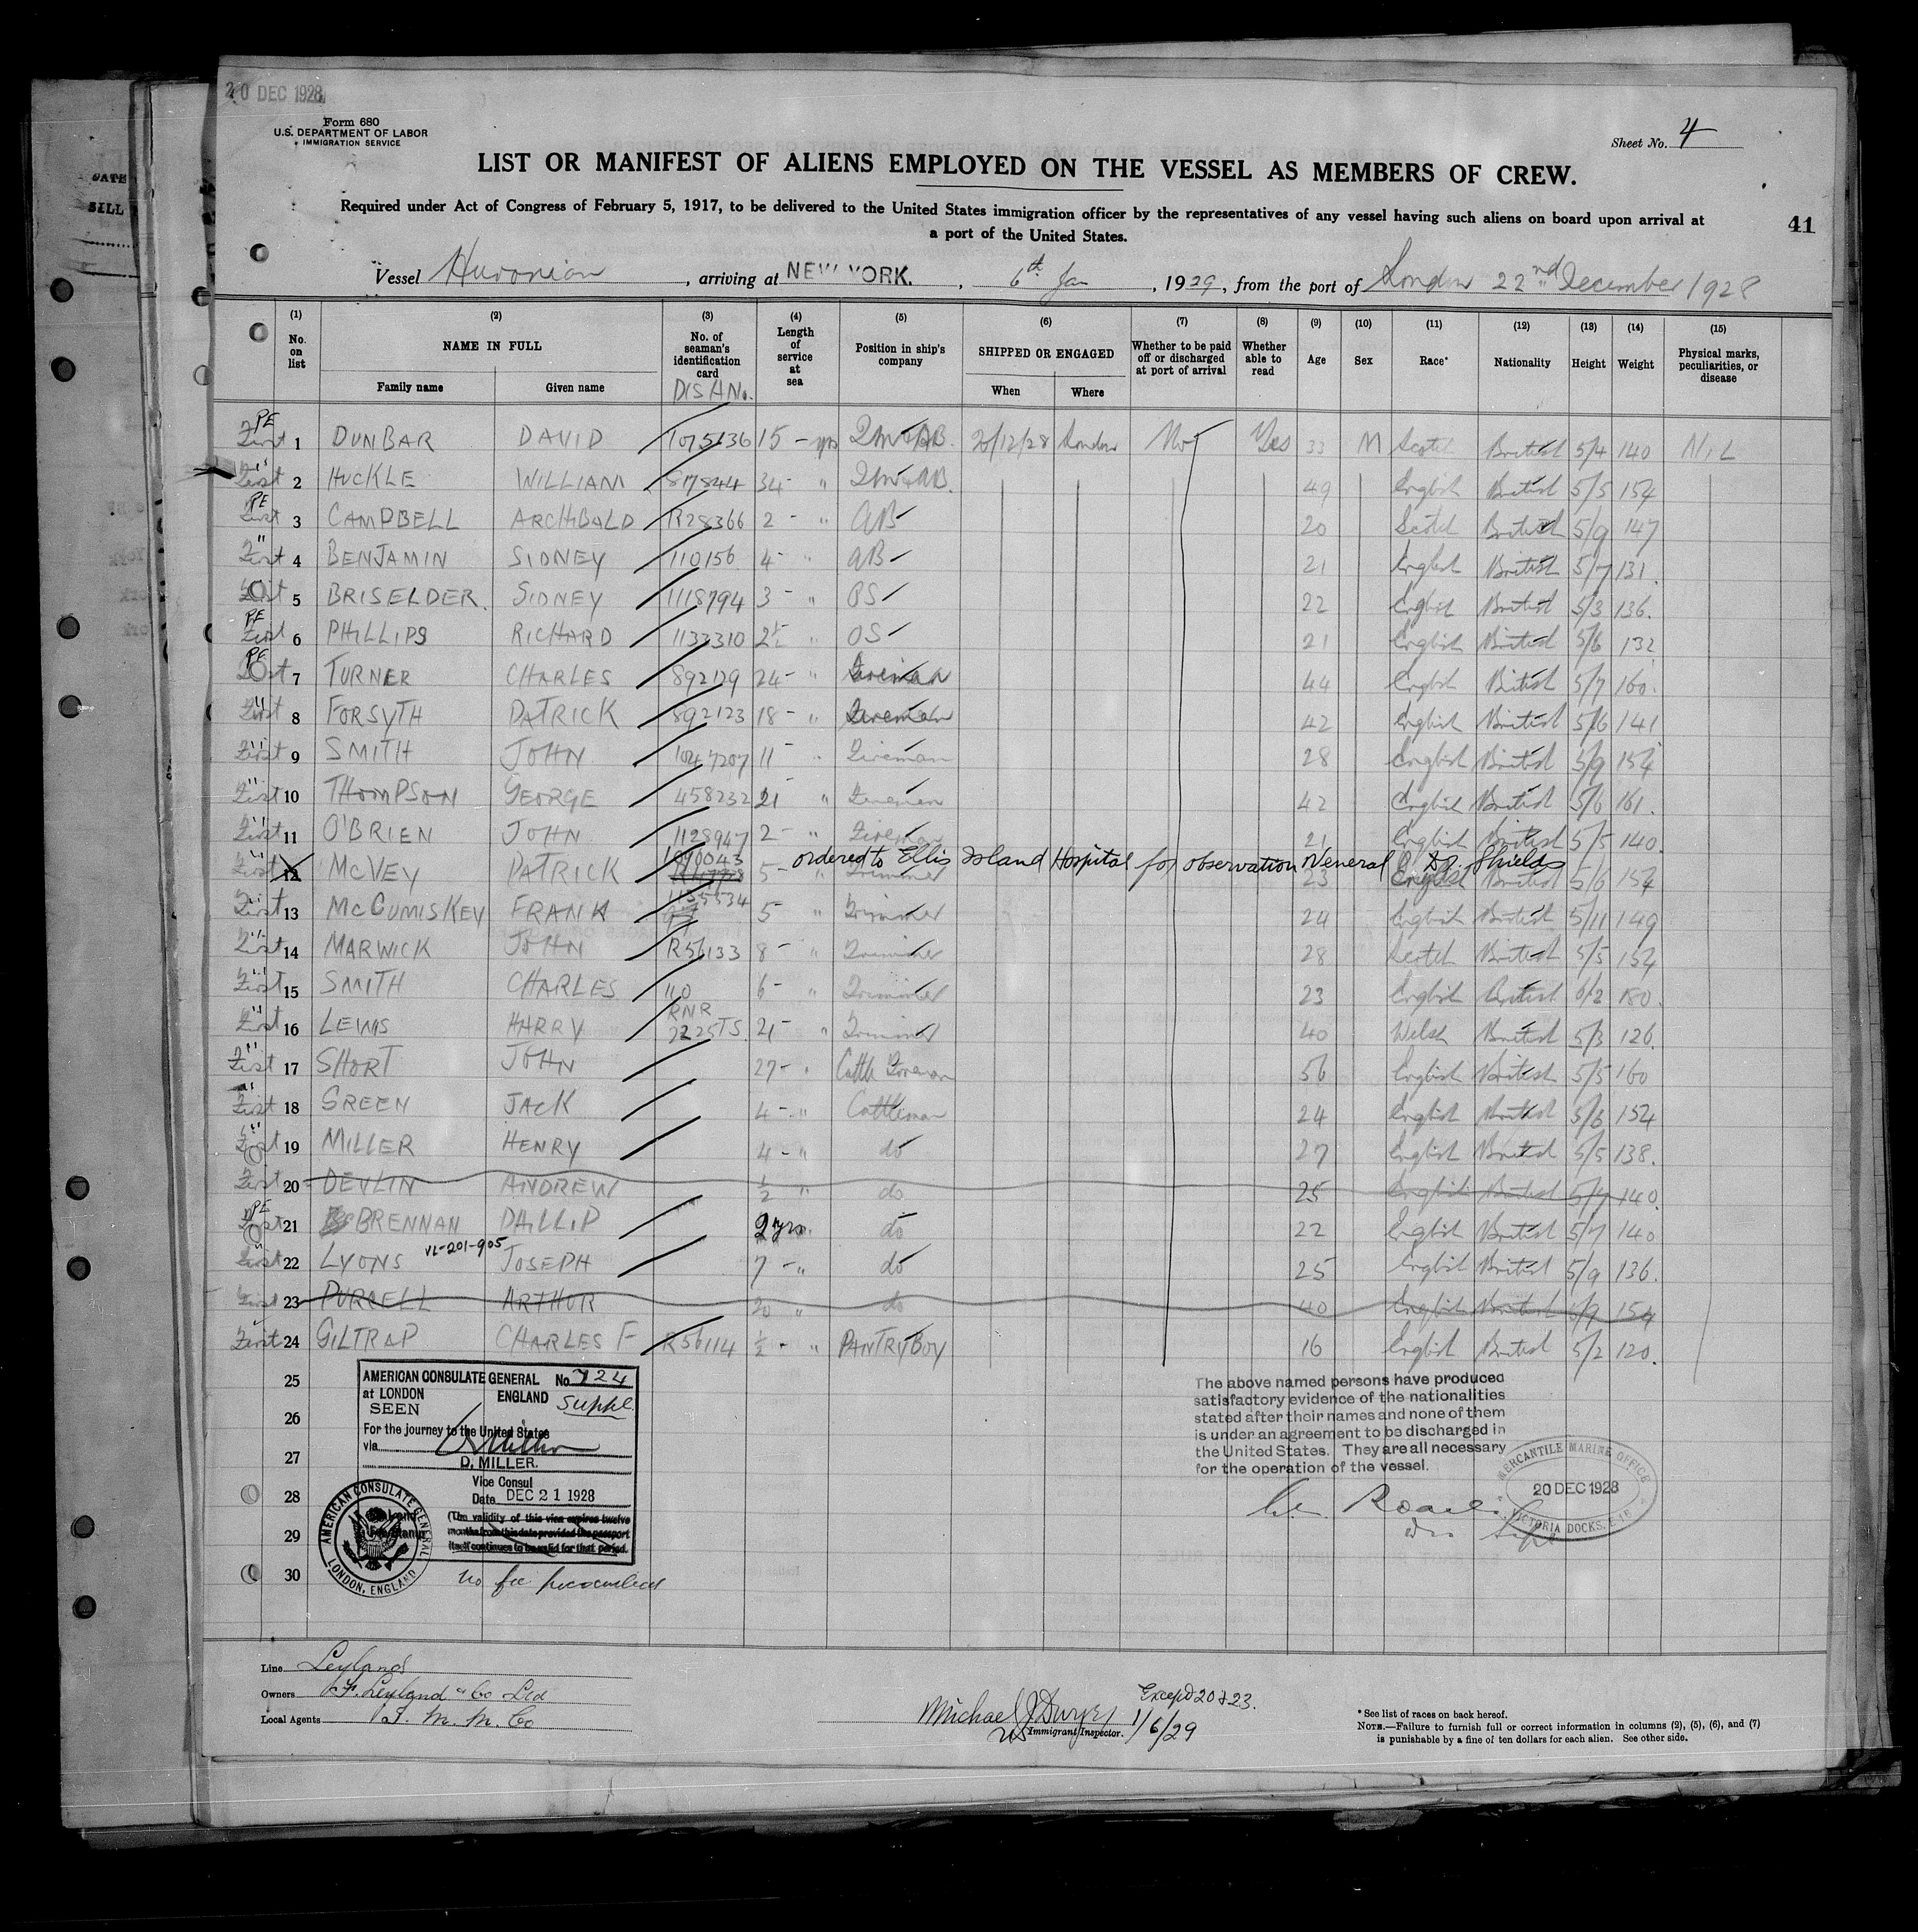 20 DEC 1928
Form 680
U.S. DEPARTMENT OF LABOR
IMMIGRATION SERVICE
Sheet No. 4
LIST OR MANIFEST OF ALIENS EMPLOYED ON THE VESSEL AS MEMBERS OF CREW.
Required under Act of Congress of February 5, 1917, to be delivered to the United States immigration officer by the representatives of any vessel having such aliens on board upon arrival at
a port of the United States.
41
Vessel Huronian, arriving at NEW YORK., 6th Jan, 1929, from the port of London 22nd December 1928
(1) No. on list (2) NAME IN FULL Family name Given name (3) No. of seaman's identification card DIS A No. (4) Length of service at sea (5) Position in ship's company (6) SHIPPED OR ENGAGED When Where (7) Whether to be paid off or discharged at port of arrival (8) Whether able to read (9) Age (10) Sex (11) Race* (12) Nationality (13) Height (14) Weight (15) Physical marks, peculiarities, or disease
PE First 1 DUNBAR DAVID 1075136 15 - yrs QM & AB. 20/12/28 London No Yes 33 M Scotch British 5/4 140 NIL
" First 2 HUCKLE WILLIAM 817844 34 - " QM & AB. 49 English British 5/5 154
PE First 3 CAMPBELL ARCHIBALD R28366 2 - " AB 20 Scotch British 5/9 147
" First 4 BENJAMIN SIDNEY 110156 4 - " AB 21 English British 5/7 131.
5 BRISELDER. SIDNEY 1118794 3 - " OS 22 English British 5/3 136.
PE First 6 PHILLIPS RICHARD 1133310 2½ " OS 21 English British 5/6 132
PE 7 TURNER CHARLES 892129 24 - " Fireman 44 English British 5/7 160.
" First 8 FORSYTH PATRICK 892123 18 - " Fireman 42 English British 5/6 141
" First 9 SMITH JOHN 1047207 11 - " Fireman 28 English British 5/9 154
" First 10 THOMPSON GEORGE 458232 21 " Fireman 42 English British 5/6 161.
" First 11 O'BRIEN JOHN 1128947 2 - " Fireman 21 English British 5/5 140.
ordered to Ellis Island Hospital for observation Veneral Dr. Shields
" First 12 McVEY PATRICK 1090043 5 - " Trimmer 23 English British 5/6 154
" First 13 McCUMISKEY FRANK 1135534 5 " Trimmer 24 English British 5/11 149
" First 14 MARWICK JOHN R56133 8 - " Trimmer 28 Scotch British 5/5 154
" First 15 SMITH CHARLES 110 6 - " Trimmer 23 English British 6/2 180.
" First 16 LEWIS HARRY RNR 2225TS. 21 - " Trimmer 40 Welsh British 5/3 126.
" First 17 SHORT JOHN 27 - " Cattle Foreman 56 English British 5/5 160
" First 18 GREEN JACK 4 - " Cattleman 24 English British 5/6 154
" 19 MILLER HENRY 4 - " do 27 English British 5/5 138.
First 20 DEVLIN ANDREW ½ " do 25 English British 5/7 140.
PE 21 BRENNAN PHILLIP 2 yrs. do 22 English British 5/7 140
First 22 LYONS VL-201-905 JOSEPH 7 - " do 25 English British 5/9 136.
First 23 PURCELL ARTHUR 20 " do 40 English British 5/9 154
First 24 GILTRAP CHARLES F R56114 ½ - " PANTRYBOY 16 English British 5/2 120.
25
26
27
28
29
30
AMERICAN CONSULATE GENERAL No. 724
at LONDON ENGLAND Suppl.
SEEN
For the journey to the United States
via
D. MILLER.
Vice Consul
Date DEC 21 1928
(The validity of this visa expires twelve
months from this date provided the passport
itself continues to be valid for that period.
AMERICAN CONSULATE GENERAL
LONDON, ENGLAND
No fee prescribed
The above named persons have produced
satisfactory evidence of the nationalities
stated after their names and none of them
is under an agreement to be discharged in
the United States. They are all necessary
for the operation of the vessel.
MERCANTILE MARINE OFFICE
20 DEC 1928
VICTORIA DOCKS, E.16
Line Leyland
Owners F. Leyland & Co Ltd
Local Agents I. M. M. Co
Except 20 & 23.
Michael J Dwyer 1/6/29
US Immigrant Inspector.
* See list of races on back hereof.
NOTE.—Failure to furnish full or correct information in columns (2), (5), (6), and (7)
is punishable by a fine of ten dollars for each alien. See other side.